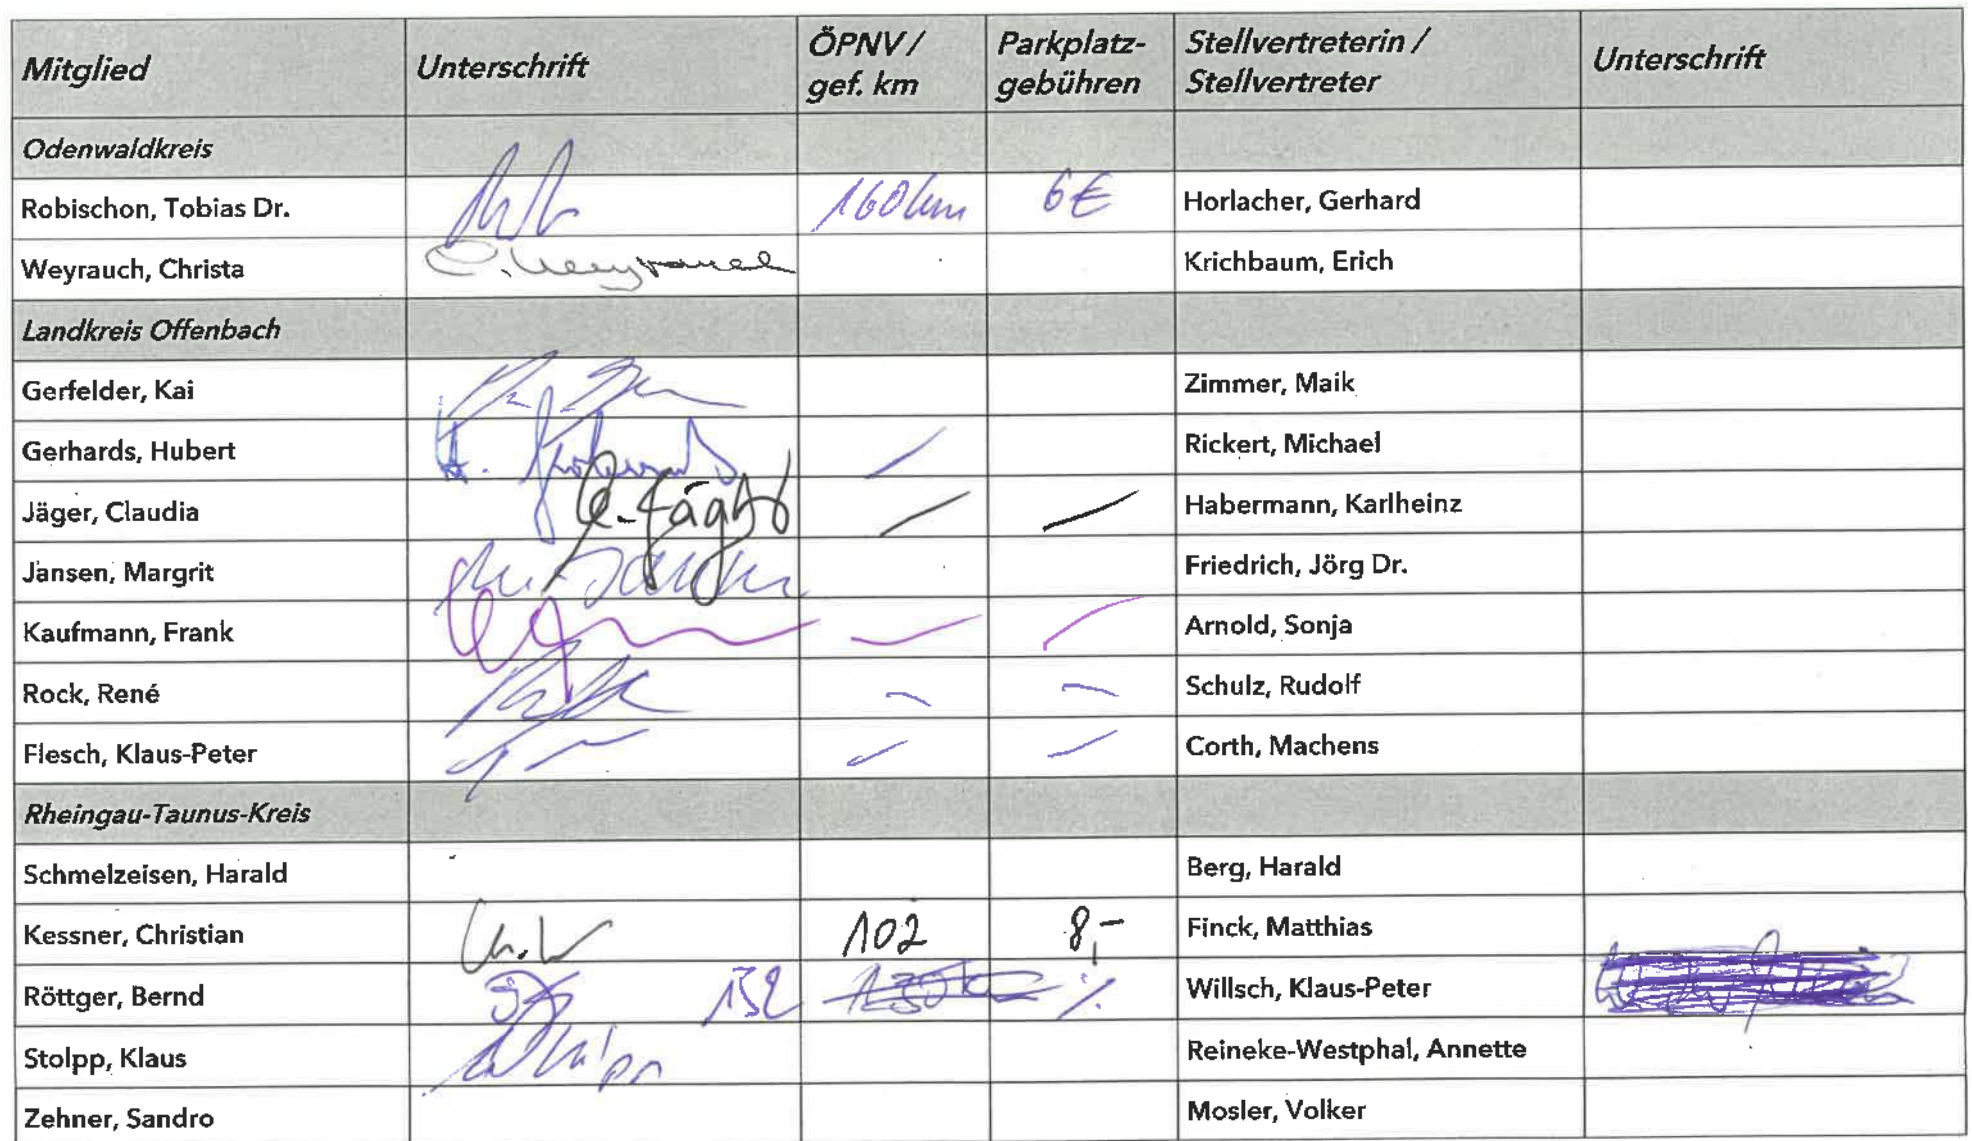 Mitglied Unterschrift ÖPNV / gef. km Parkplatz-gebühren Stellvertreterin / Stellvertreter Unterschrift
Odenwaldkreis
Robischon, Tobias Dr. 160 km 6€ Horlacher, Gerhard
Weyrauch, Christa C. Weyrauch Krichbaum, Erich
Landkreis Offenbach
Gerfelder, Kai Zimmer, Maik
Gerhards, Hubert Rickert, Michael
Jäger, Claudia Habermann, Karlheinz
Jansen, Margrit Friedrich, Jörg Dr.
Kaufmann, Frank Arnold, Sonja
Rock, René Schulz, Rudolf
Flesch, Klaus-Peter Corth, Machens
Rheingau-Taunus-Kreis
Schmelzeisen, Harald Berg, Harald
Kessner, Christian 102 8,- Finck, Matthias
Röttger, Bernd 132 Willsch, Klaus-Peter
Stolpp, Klaus Reineke-Westphal, Annette
Zehner, Sandro Mosler, Volker